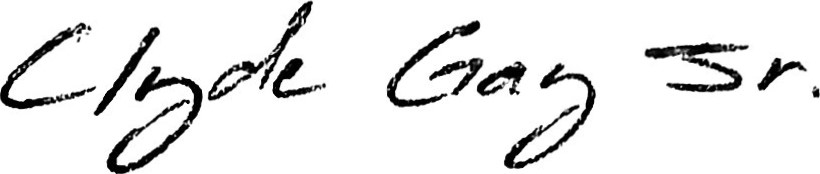 Clyde Gay Jr.